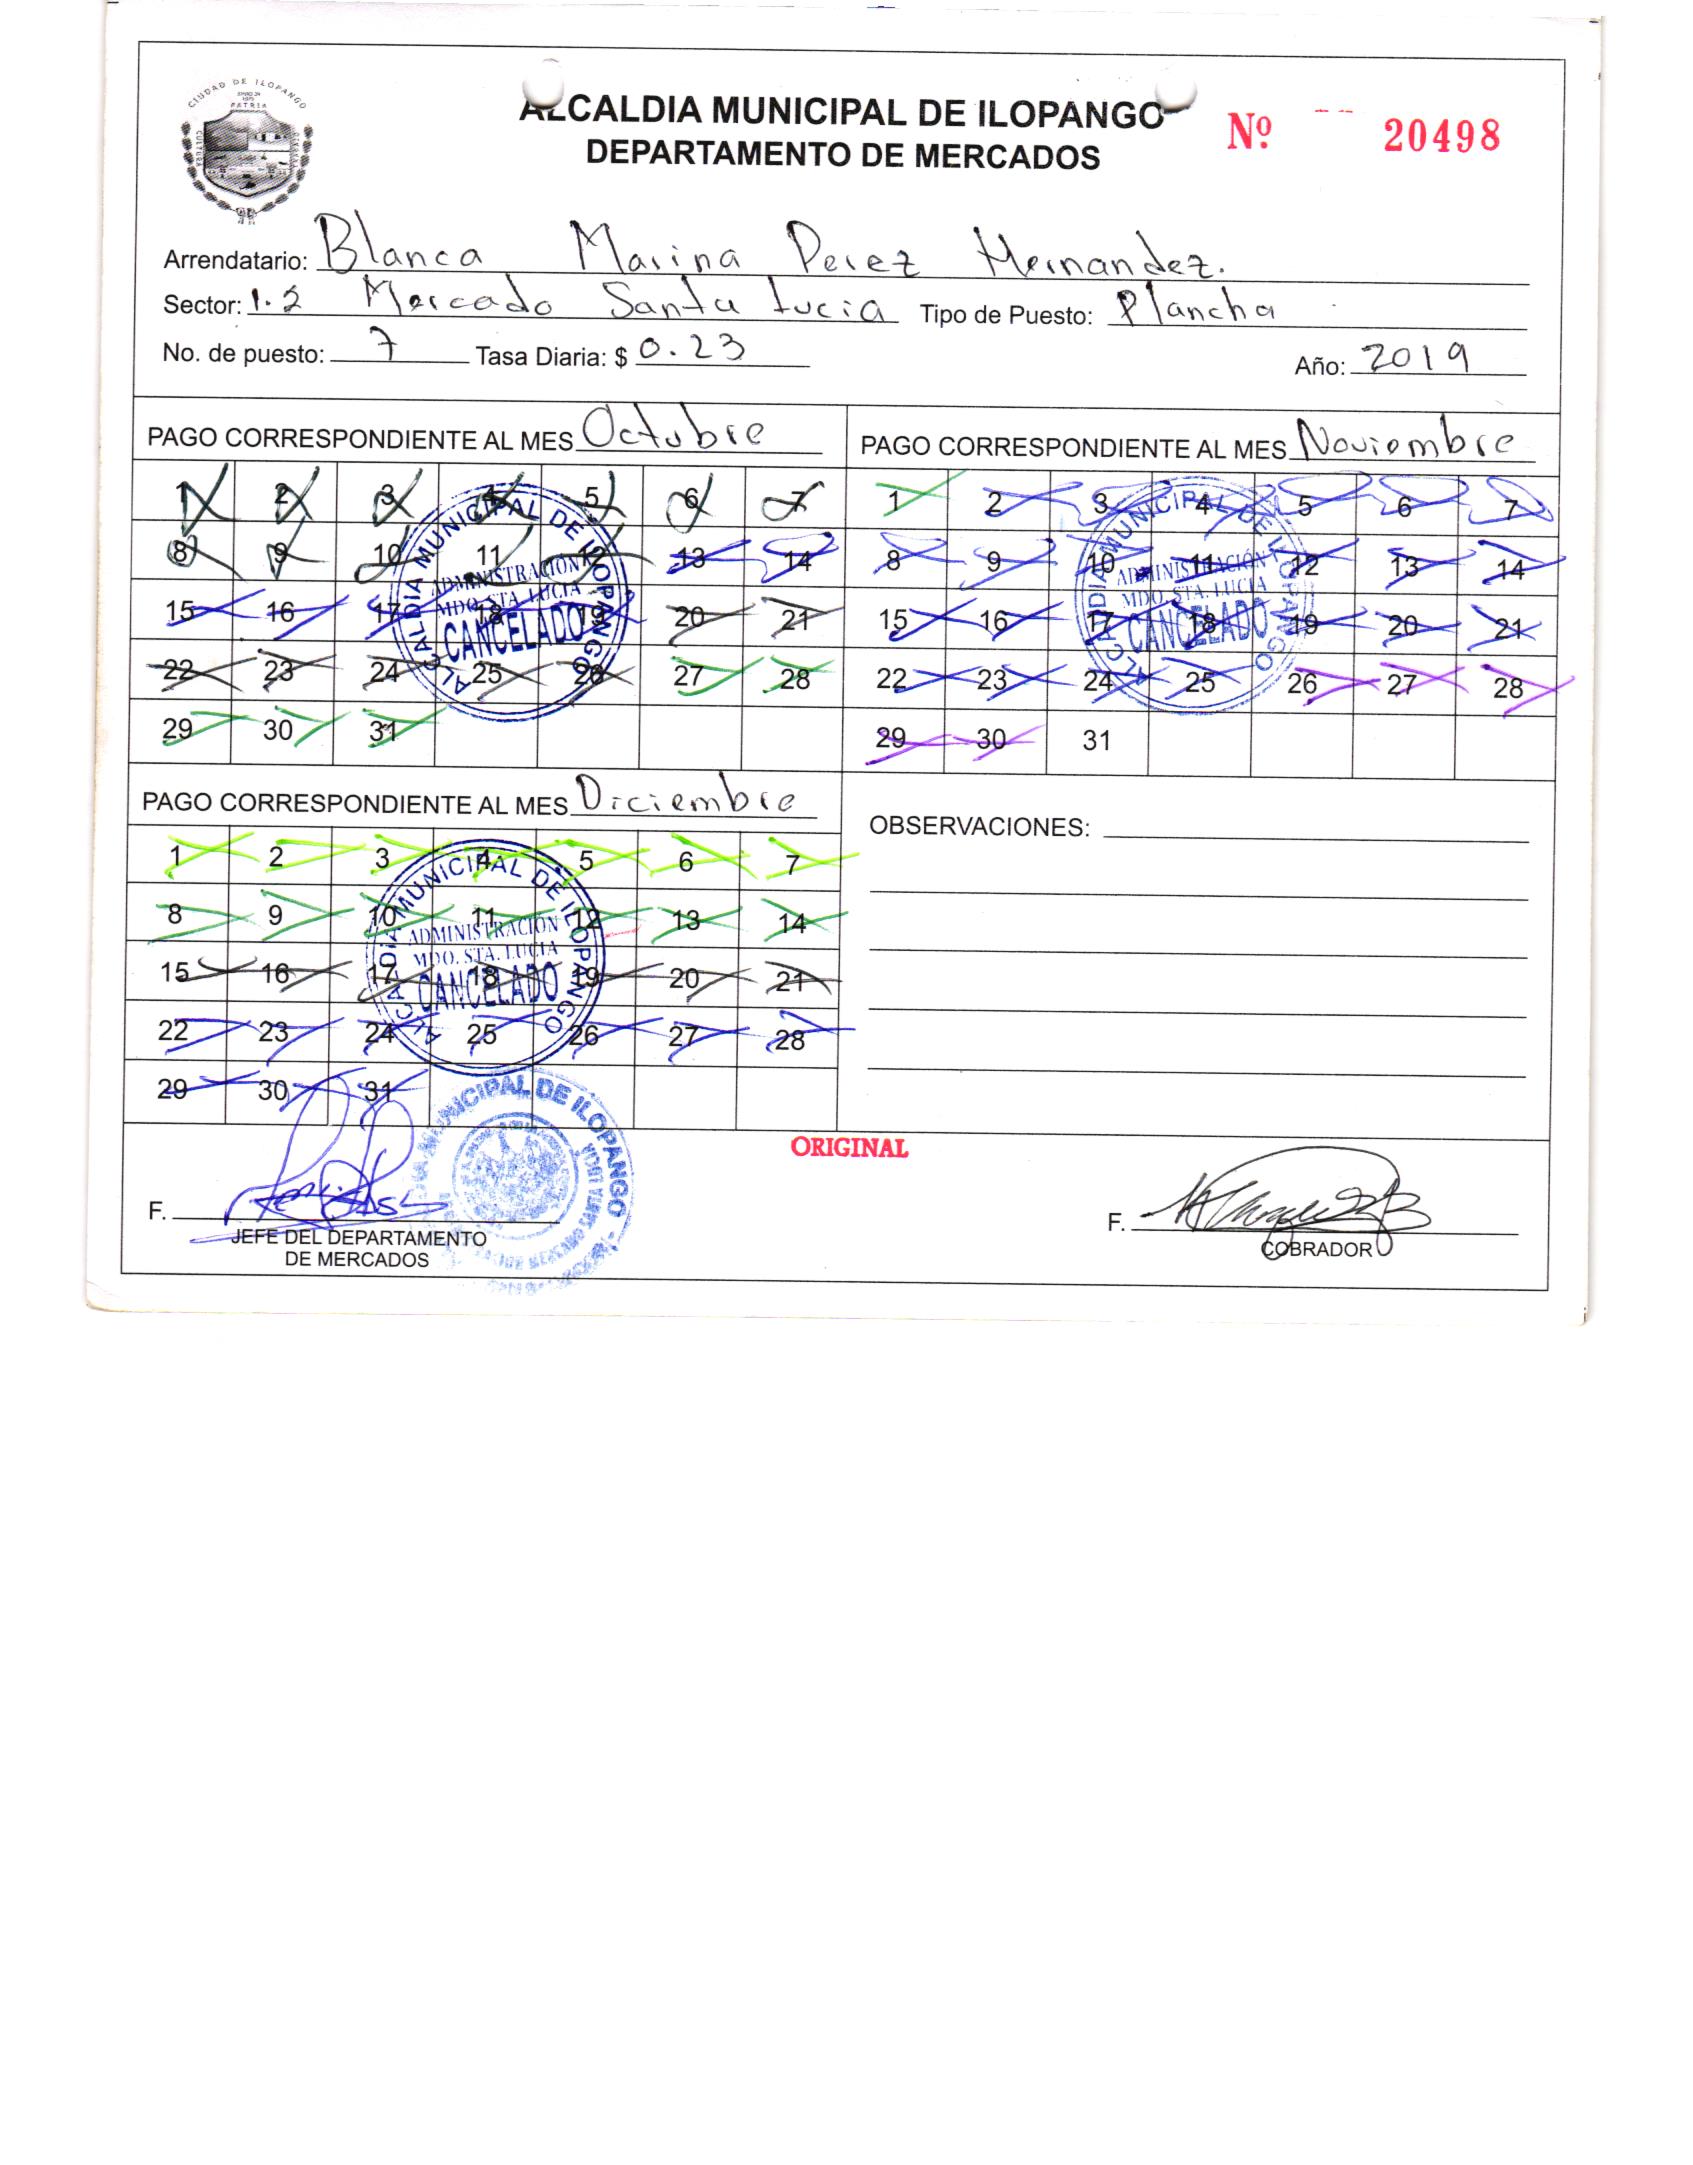 CIUDAD DE ILOPANGO
PATRIA
CULTURA
ALCALDIA MUNICIPAL DE ILOPANGO
DEPARTAMENTO DE MERCADOS
Nº 20498
Arrendatario: Blanca Marina Perez Hernandez.
Sector: 1.2 Mercado Santa Lucia Tipo de Puesto: Plancha
No. de puesto: 7 Tasa Diaria: $ 0.23 Año: 2019
PAGO CORRESPONDIENTE AL MES Octubre
1 2 3 4 5 6 7
8 9 10 11 12 13 14
15 16 17 18 19 20 21
22 23 24 25 26 27 28
29 30 31
ALCALDIA MUNICIPAL DE ILOPANGO
ADMINISTRACIÓN
MDO. STA. LUCIA
CANCELADO
PAGO CORRESPONDIENTE AL MES Noviembre
1 2 3 4 5 6 7
8 9 10 11 12 13 14
15 16 17 18 19 20 21
22 23 24 25 26 27 28
29 30 31
ALCALDIA MUNICIPAL DE ILOPANGO
ADMINISTRACIÓN
MDO. STA. LUCIA
CANCELADO
PAGO CORRESPONDIENTE AL MES Diciembre
1 2 3 4 5 6 7
8 9 10 11 12 13 14
15 16 17 18 19 20 21
22 23 24 25 26 27 28
29 30 31
ALCALDIA MUNICIPAL DE ILOPANGO
ADMINISTRACIÓN
MDO. STA. LUCIA
CANCELADO
OBSERVACIONES:
MUNICIPAL DE ILOPANGO
ORIGINAL
F.
JEFE DEL DEPARTAMENTO
DE MERCADOS
F.
COBRADOR